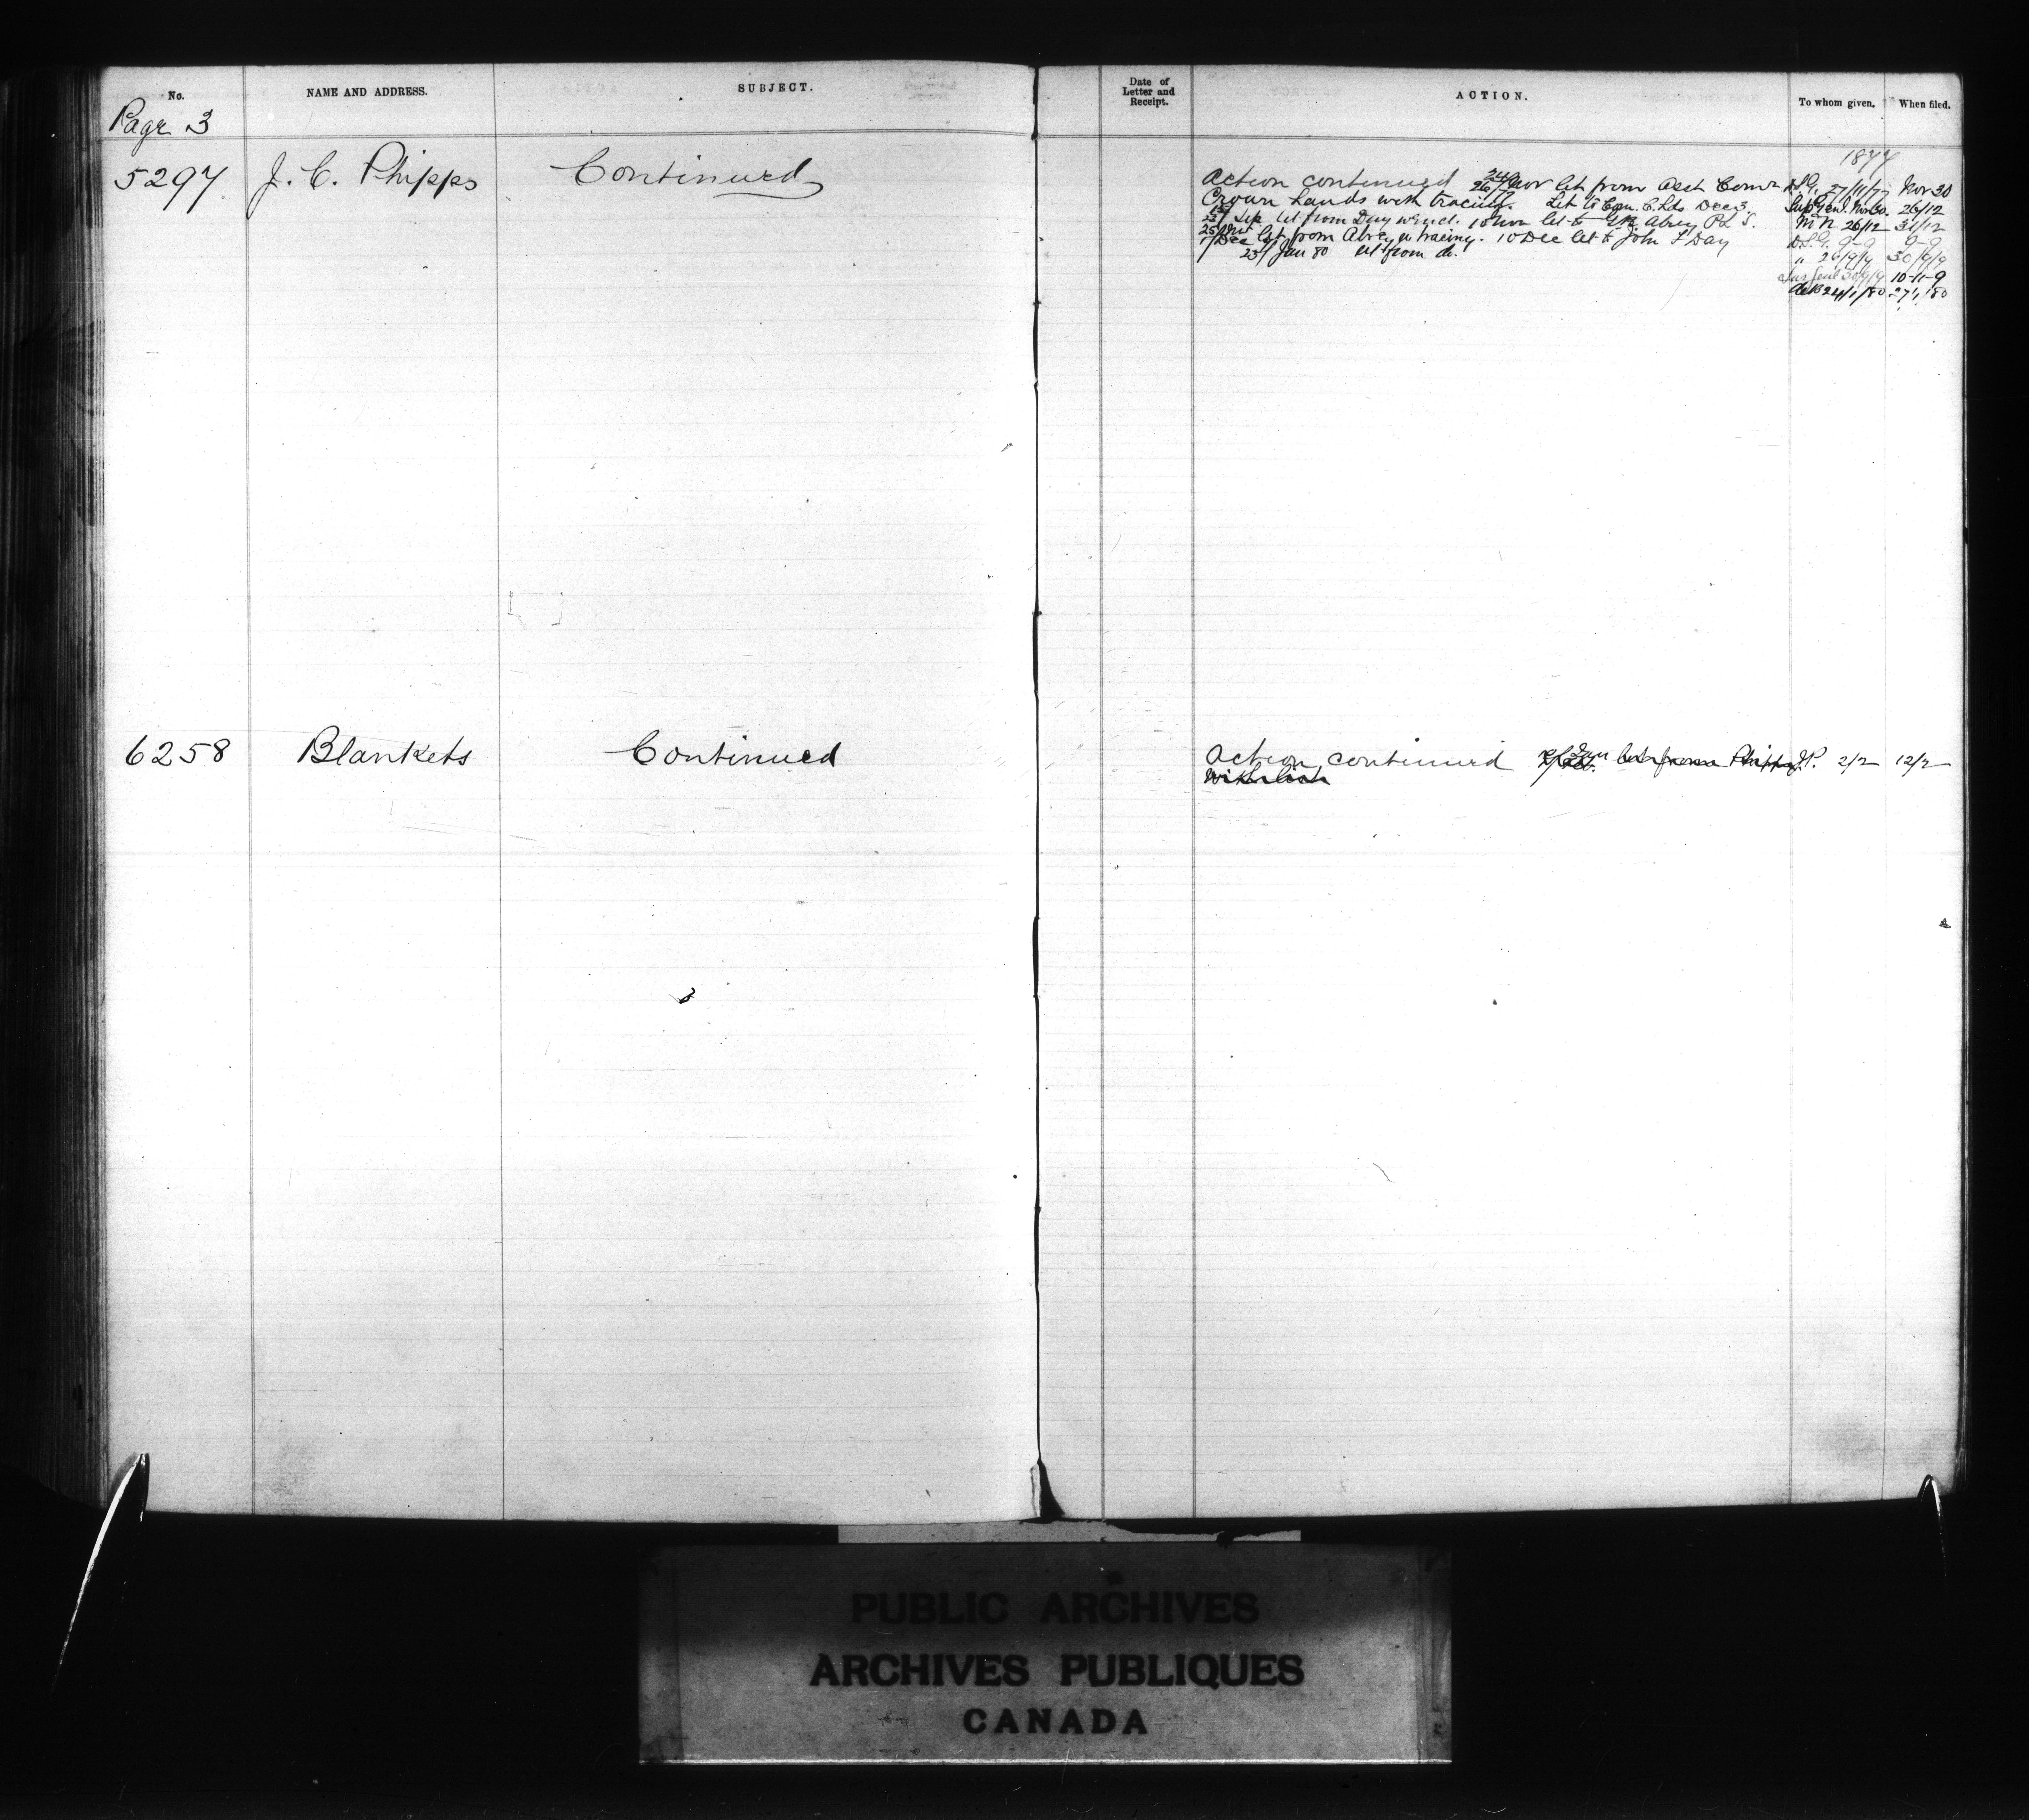 No.
NAME AND ADDRESS.
SUBJECT.
Date of
Letter and
Receipt.
ACTION.
To whom given.
When filed.
Page 3
5297
J. C. Phipps
Continued
1877
Action continued 24/26 Nov let from Asst Comr
Crown Lands with tracing. Let to Com. C. Lds Dec 3.
Sep let from Day w encl. 10 Nov let to Abrey P L S.
1 Dec let from Abrey w tracing. 10 Dec let to John F Day
23/ Jan 80 let from do.
D.S.G. 27/11/77 Nov 30
Supt Genl. Nov 30. 26/12
M N 26/12 31/12
D.S.G. 9-9 9-9
" 26/9/9 30/9/9
30/9/9 10-11-9
24/1/80 27/1/80
6258
Blankets
Continued
Action continued let from Phipps J.P. 2/2 12/2
PUBLIC ARCHIVES
ARCHIVES PUBLIQUES
CANADA